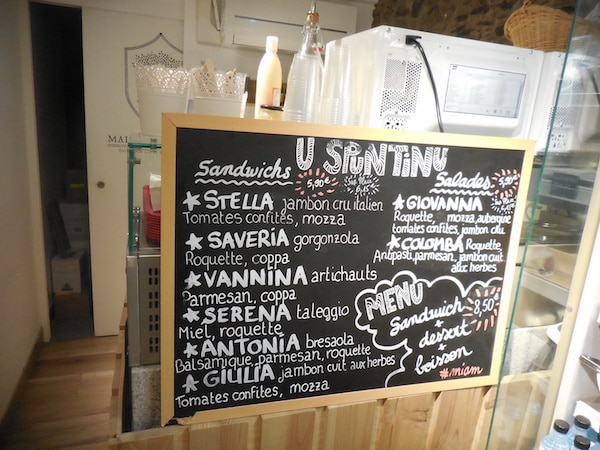 U SPUNTINU
Sandwichs
5,90€
★ STELLA jambon cru italien
Tomates confites, mozza
★ SAVERIA gorgonzola
Roquette, coppa
★ VANNINA artichauts
Parmesan, coppa
★ SERENA taleggio
Miel, roquette
★ ANTONIA bresaola
Balsamique, parmesan, roquette
★ GIULIA jambon cuit aux herbes
Tomates confites, mozza
Salades
5,90€
★ GIOVANNA
Roquette, mozza, aubergine
tomates confites, jambon cru
★ COLOMBA Roquette,
Antipasti, parmesan, jambon cuit
aux herbes
MENU
8,50€
Sandwich
+
dessert
+
boisson
#miam